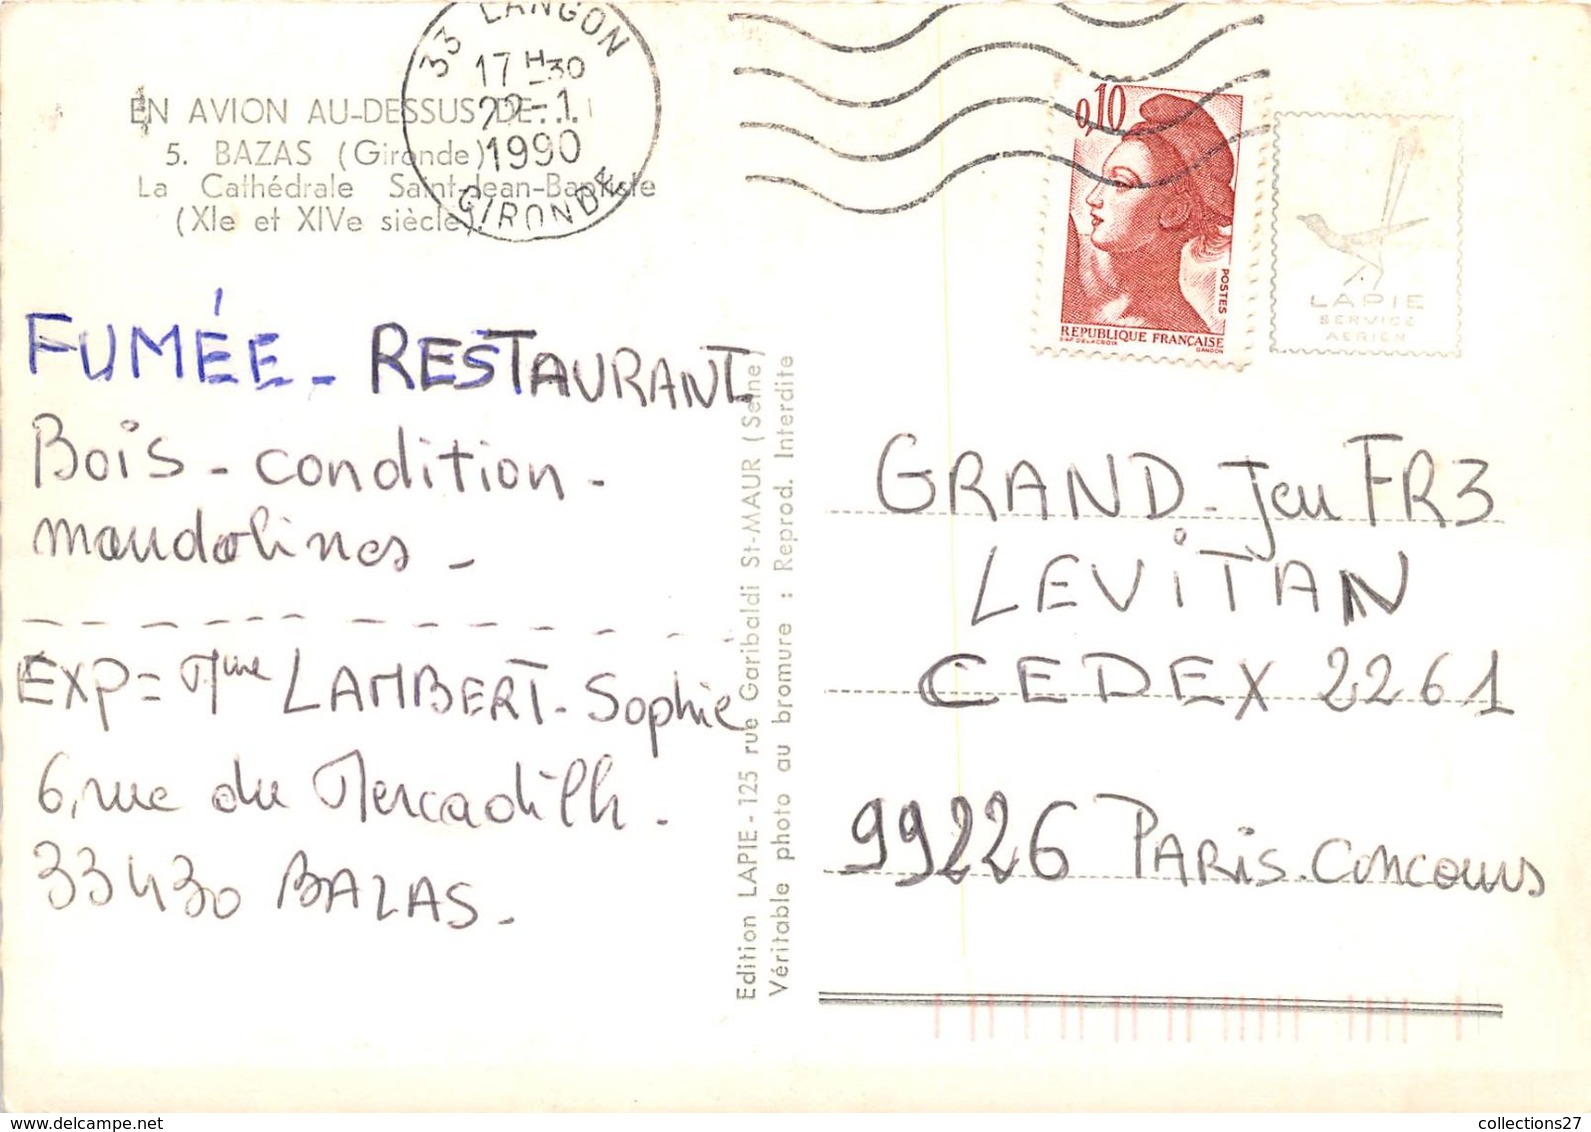 EN AVION AU-DESSUS DE...
5. BAZAS (Gironde)
La Cathédrale Saint-Jean-Baptiste
(XIe et XIVe siècle)
33 LANGON
17 H 30
22-1
1990
GIRONDE
0,10
POSTES
REPUBLIQUE FRANÇAISE
D'AP. DELACROIX GANDON
LAPIE
SERVICE
AERIEN
FUMÉE - RESTAURANT
Bois - condition -
mandolines -
EXP = Mme LAMBERT - Sophie
6, rue du Mercadilh -
33430 BAZAS -
Edition LAPIE - 125 rue Garibaldi St-MAUR (Seine)
Véritable photo au bromure : Reprod. Interdite
GRAND - Jeu FR3
LEViTAN
CEDEX 2261
99226 PARiS. Concours
collections27